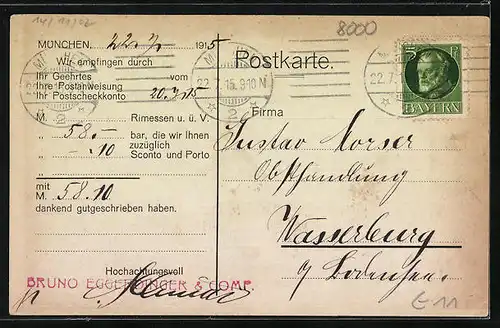 14/11/02
8000
MÜNCHEN, 22. 7. 1915
Wir empfingen durch
Ihr Geehrtes vom
Ihre Postanweisung
Ihr Postscheckkonto 20.7.15
M. Rimessen u. ü. V.
„ 58.- bar, die wir Ihnen
„ -.10 zuzüglich
Sconto und Porto
mit
M. 58.10
dankend gutgeschrieben haben.
Hochachtungsvoll
BRUNO EGGERDINGER & COMP.
Postkarte.
22. 7. 15. 9 10 N
2
5 P
BAYERN
Firma
Gustav Morser
Obsthandlung
Wasserburg
a/ Bodensee.
€ 11.-